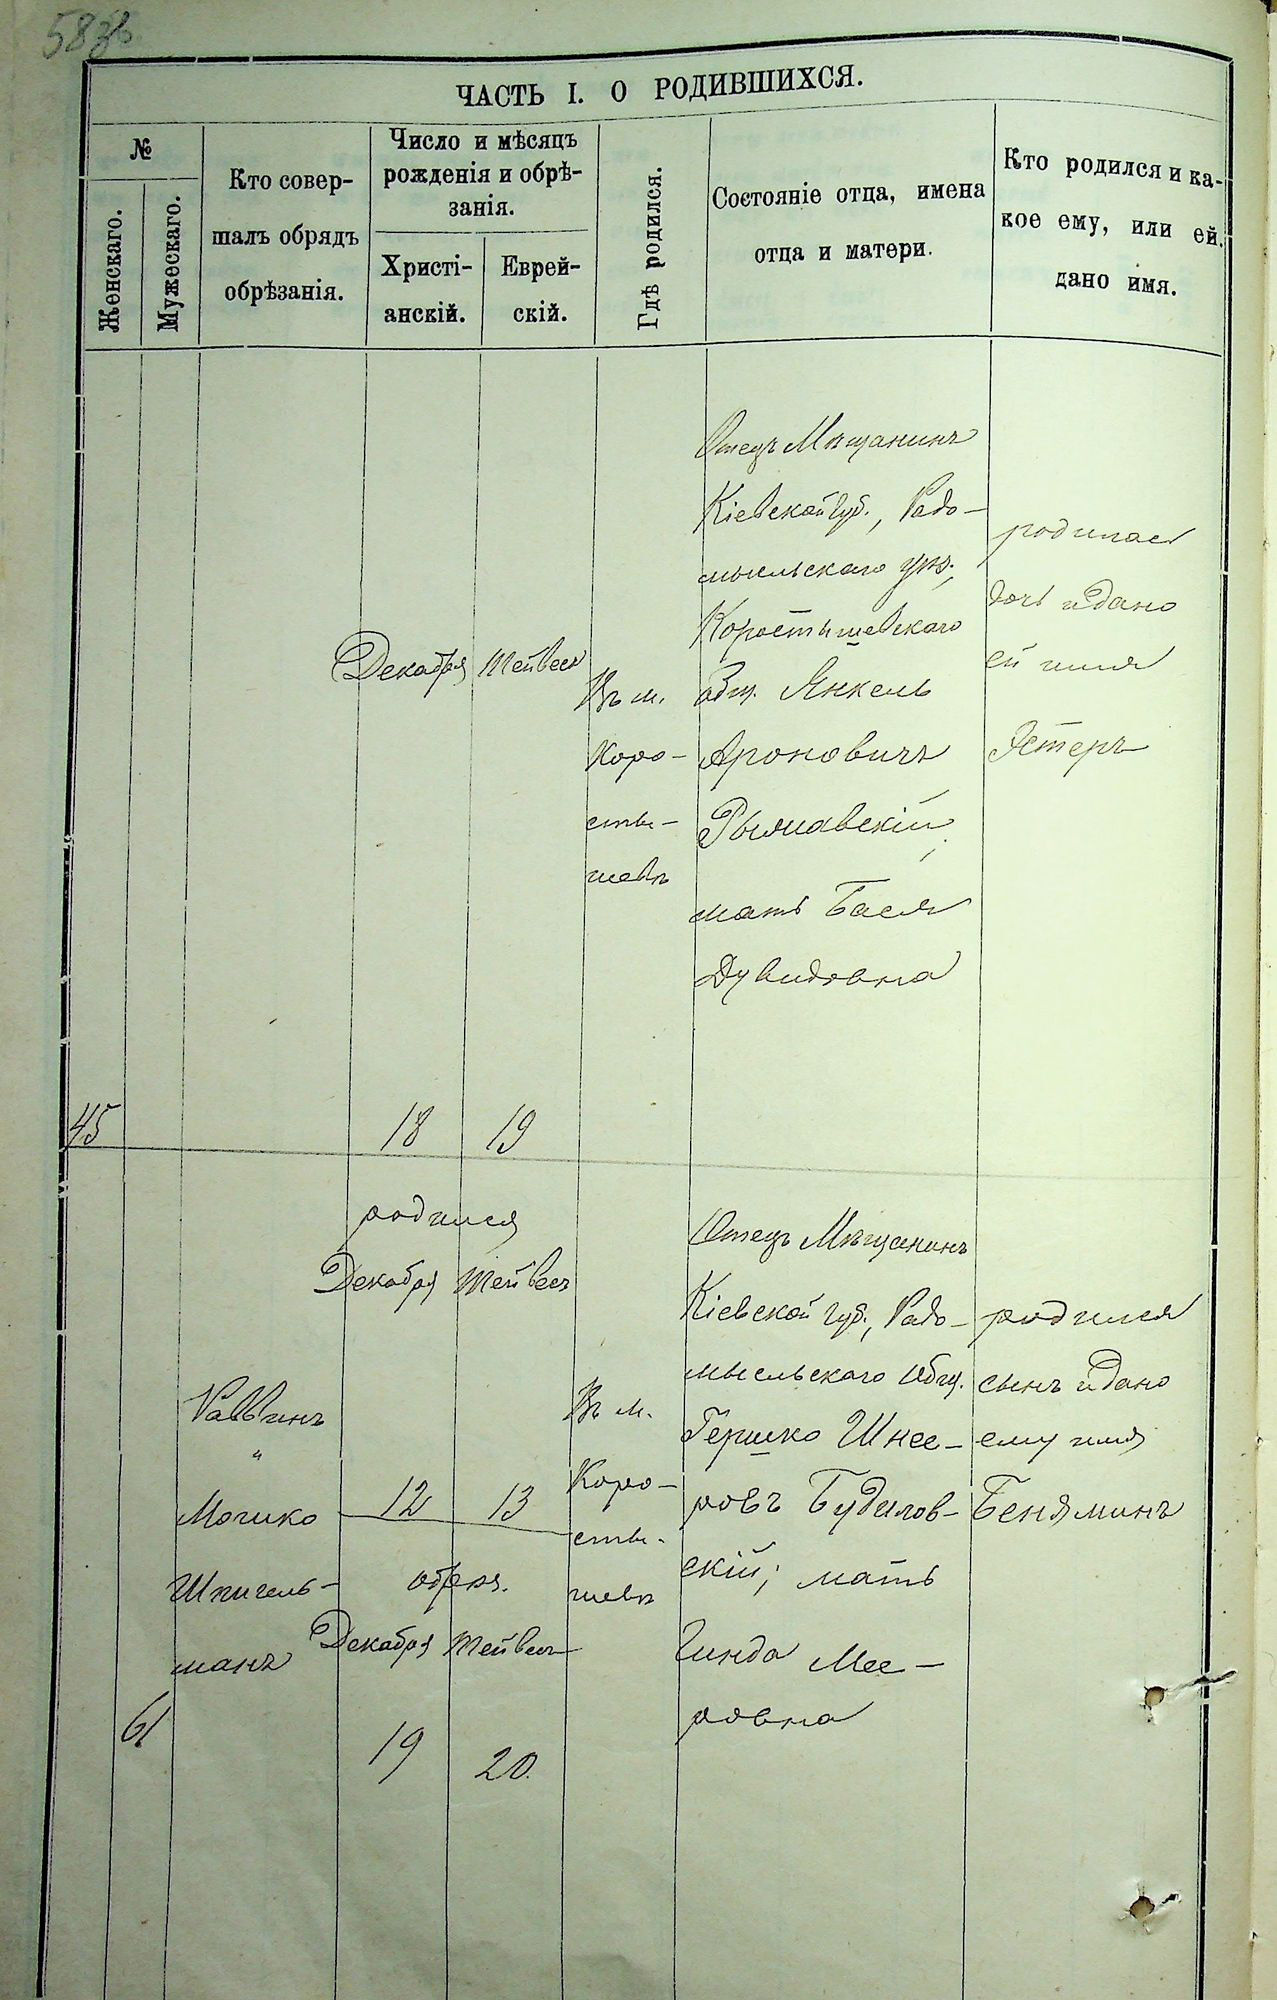 583
ЧАСТЬ I. О РОДИВШИХСЯ.
№
Женскаго.
Мужескаго.
Кто совер-
шалъ обрядъ
обрѣзанія.
Число и мѣсяцъ
рожденія и обрѣ-
занія.
Христі-
анскій.
Еврей-
скій.
Гдѣ родился.
Состояніе отца, имена
отца и матери.
Кто родился и ка-
кое ему, или ей.
дано имя.
45
Декабря
18
Тейвесъ
19
Въ м.
Коро-
сты-
шевъ
Отецъ Мѣщанинъ
Кіевской Губ., Радо-
мысльскаго уѣз.,
Коростышевскаго
общ. Янкель
Ароновичъ
мать Бася
Дувидовна
родилась
дочь и дано
ей имя
Эстеръ
61
Раввинъ
"
Мошко
Шпигель-
манъ
родился
Декабря
Тейвесъ
12
13
обрѣз.
Декабря
Тейвесъ
19
20.
Въ м.
Коро-
сты-
шевъ
Отецъ Мѣщанинъ
Кіевской губ., Радо-
мысльскаго Общ.
Гершко Шнее-
ровъ Будилов-
скій; мать
Гинда Мее-
ровна
родился
сынъ и дано
ему имя
Беняминъ